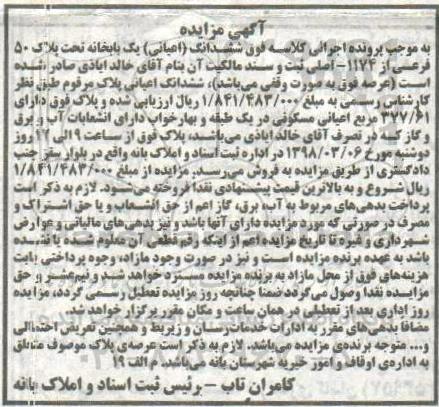 آگهی مزایده
به موجب پرونده اجرائی کلاسه فوق ششدانگ (اعیانی) یک بابخانه تحت پلاک ۵۰
فرعی از ۱۱۷۴- اصلی ثبت و سند مالکیت آن بنام آقای خالد ایاذی صادر شده
است (عرصه فوق به صورت وقفی می‌باشد)، ششدانگ اعیانی پلاک مرقوم طبق نظر
کارشناس رسمی به مبلغ ۱/۸۴۱/۴۸۳/۰۰۰ ریال ارزیابی شده و پلاک فوق دارای
۳۷۷/۶۱ مربع اعیانی مسکونی در یک طبقه و بهارخواب دارای انشعابات آب و برق
و گاز که در تصرف آقای خالد ایاذی می‌باشد، پلاک فوق از ساعت ۹ الی ۱۲ روز
دوشنبه مورخ ۱۳۹۸/۰۳/۰۶ در اداره ثبت اسناد و املاک بانه واقع در بلوار سنز جنب
دادگستری از طریق مزایده به فروش می‌رسد. مزایده از مبلغ ۱/۸۴۱/۴۸۳/۰۰۰
ریال شروع و به بالاترین قیمت پیشنهادی نقدا فروخته می‌شود. لازم به ذکر است
پرداخت بدهی‌های مربوط به آب، برق، گاز اعم از حق انشعاب و یا حق اشتراک و
مصرف در صورتی که مورد مزایده دارای آنها باشد و نیز بدهی‌های مالیاتی و عوارض
شهرداری و غیره تا تاریخ مزایده اعم از اینکه رقم قطعی آن معلوم شده یا نشده
باشد به عهده برنده مزایده است و نیز در صورت وجود مازاد، وجوه پرداختی بابت
هزینه‌های فوق از محل مازاد به برنده مزایده مسترد خواهد شد و نیم‌عشر و حق
مزایده نقدا وصول می‌گردد ضمنا چنانچه روز مزایده تعطیل رسمی گردد، مزایده
روز اداری بعد از تعطیلی در همان ساعت و مکان مقرر برگزار خواهد شد.
مضافا بدهی‌های مقرر به ادارات خدمات‌رسان و زیربط و همچنین تعریض احتمالی
و... متوجه برنده‌ی مزایده می‌باشد. لازم به ذکر است عرصه‌ی پلاک موصوف متعلق
به اداره‌ی اوقاف و امور خیریه شهرستان بانه می‌باشد. م الف ۱۹
کامران تاب - رئیس ثبت اسناد و املاک بانه